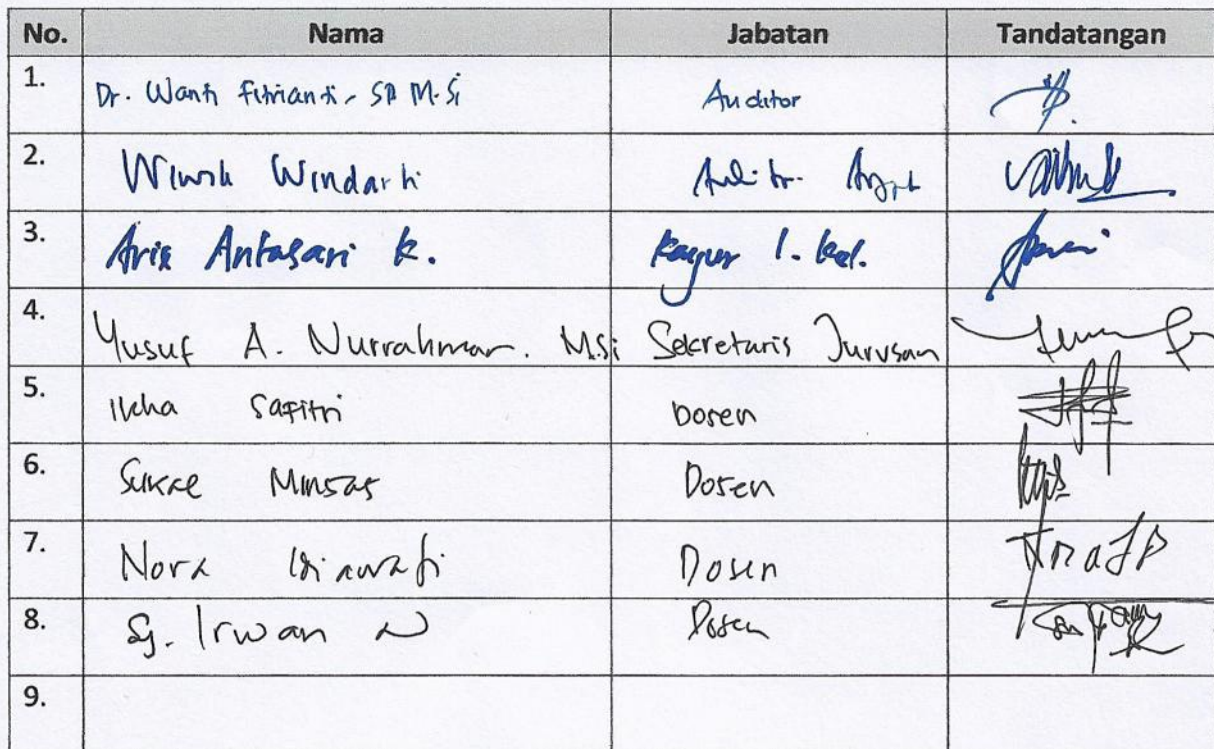 No. Nama Jabatan Tandatangan
1. Dr. Wanti Fitrianti, SP M.Si Auditor
2. Wiwik Windarti
3. Aris Antasari K.
4. Yusuf A. Nurrahman. M.Si Sekretaris Jurusan
5. Ikha Safitri Dosen
6. Sukal Minsas Dosen
7. Nora Idiawati Dosen
8. Irwan N Dosen
9.